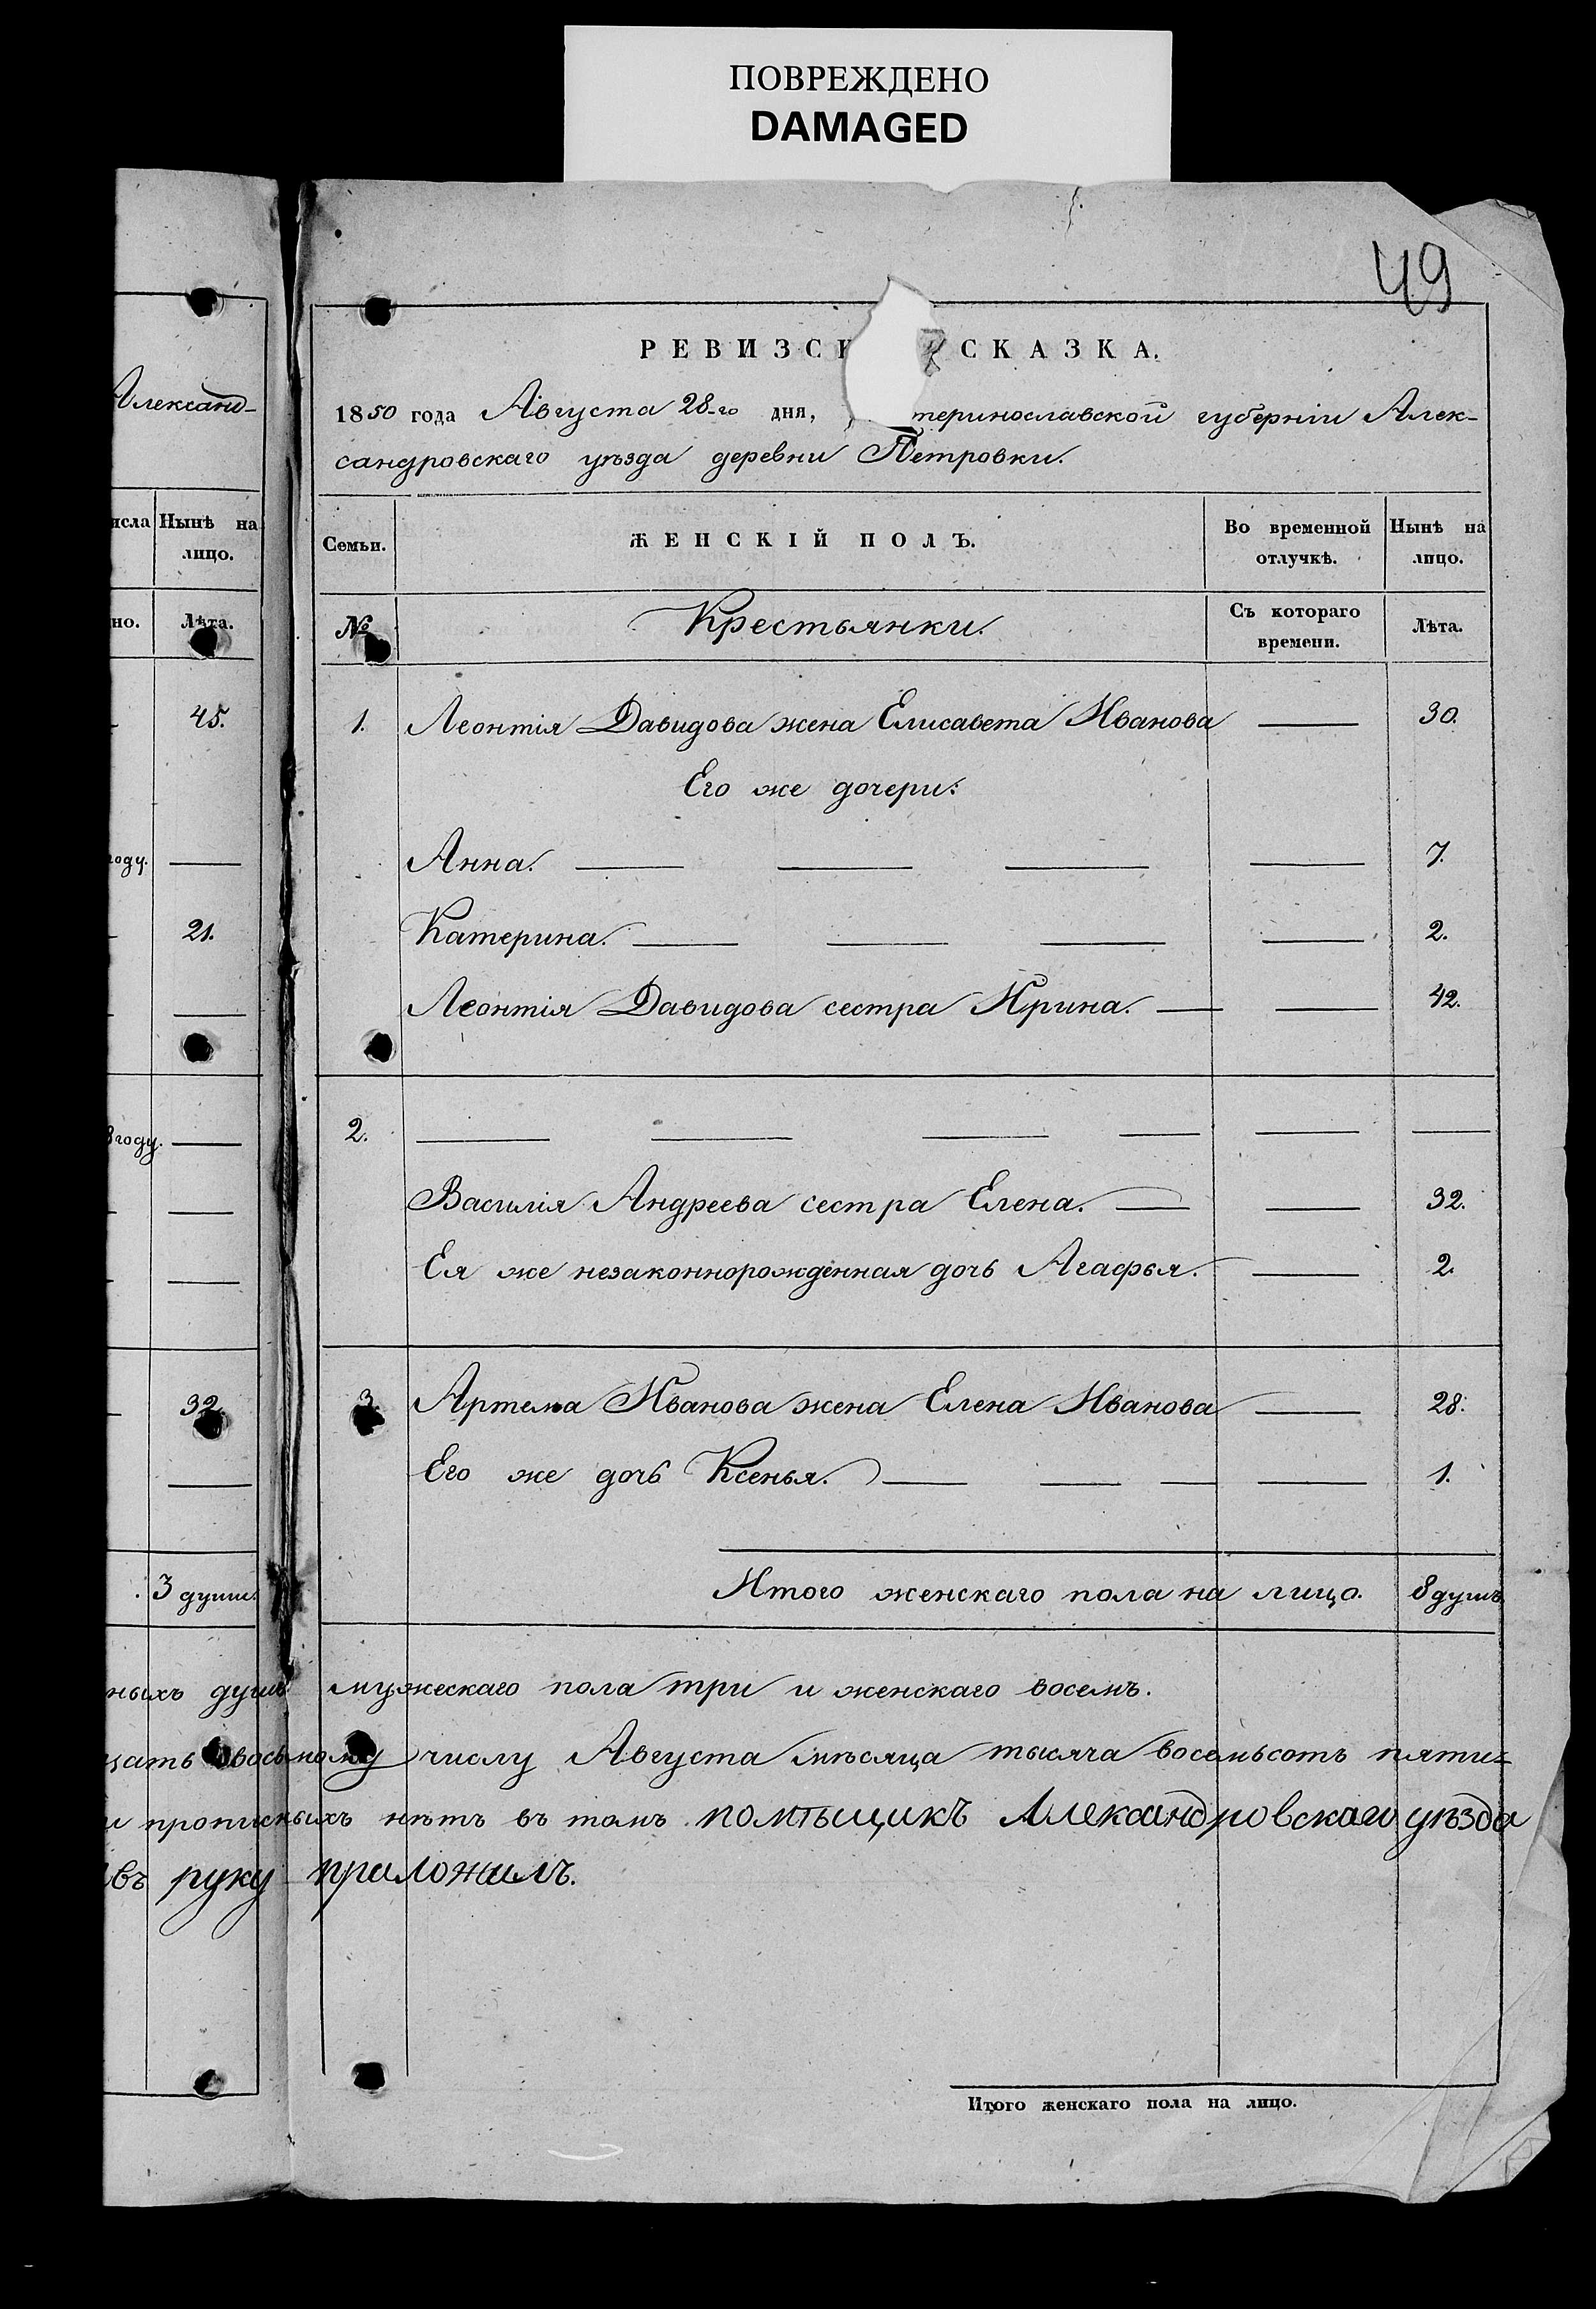 ПОВРЕЖДЕНО
DAMAGED
49
РЕВИЗСК СКАЗКА.
1850 года Августа 28-го дня, теринославской губерніи Алек-
сандровскаго уѣзда деревни Петровки.
Семьи. ЖЕНСКІЙ ПОЛЪ. Во временной отлучкѣ. Нынѣ на лицо.
№ Крестьянки. Съ котораго времени. Лѣта.
1. Леонтія Давидова жена Елисавета Иванова — 30.
Его же дочери:
Анна. — — — — 7.
Катерина. — — — — 2.
Леонтія Давидова сестра Ирина. — — 42.
2. — — — — — —
Василія Андреева сестра Елена. — — 32.
Ея же незаконнорожденная дочь Агафья. — 2.
3. Артема Иванова жена Елена Иванова — 28.
Его же дочь Ксенья. — — — — 1.
Итого женскаго пола на лицо. 8 душъ
мужескаго пола три и женскаго восемь.
числу Августа мѣсяца тысяча восемьсотъ пяти-
нѣтъ въ томъ помѣщикъ Александровскаго уѣзда
приложилъ.
Итого женскаго пола на лицо.
Александ-
исла Нынѣ на лицо.
но. Лѣта.
45.
году. —
21.
—
8 году. —
—
—
32.
—
3 души.
ныхъ душъ
цать восьмому
и прописныхъ
въ руку